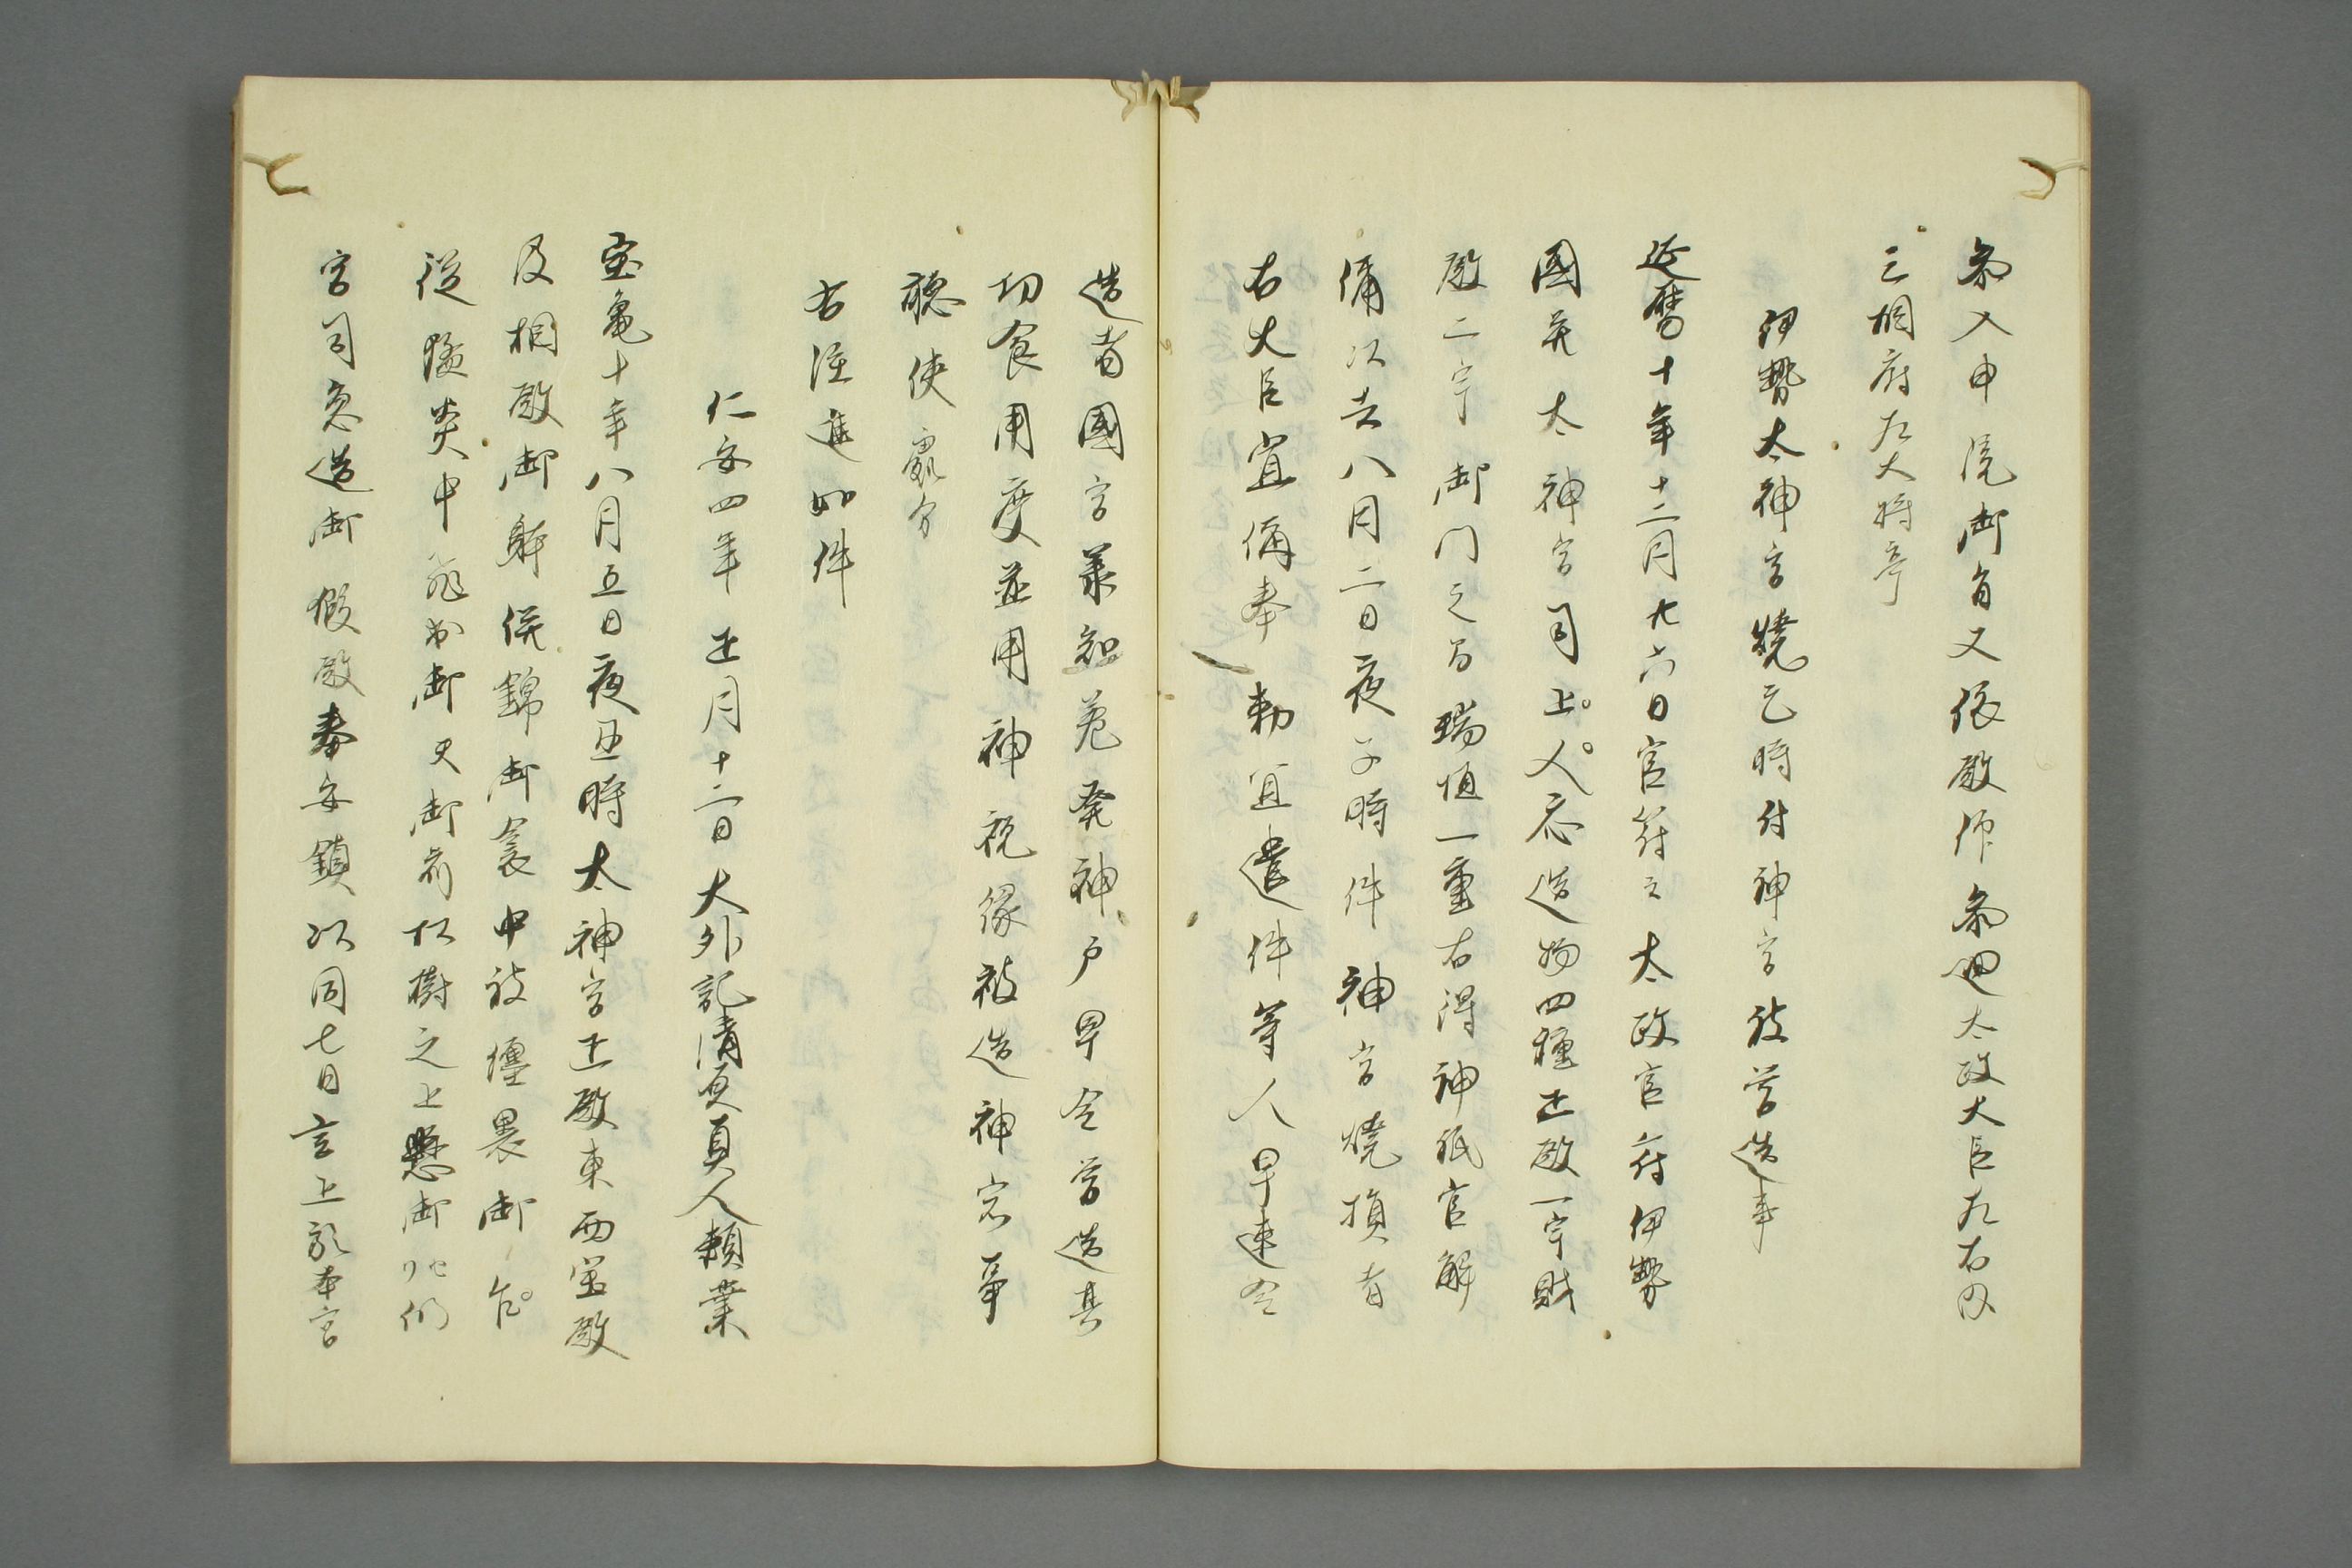 参入申院御自又依殿仰参廻太政大臣左右内
三相府左大将亭
伊勢太神宮焼亡時付神宮被営造事
延暦十年十二月廿六日官符云太政官符伊勢
國并太神宮司上人応造物四種正殿一宇財
殿二宇御門三間瑞垣一重右得神祇官解
偁以去八月二日夜子時件神宮焼損者
右大臣宣偁奉勅宜遣件等人早速令
造者國宜承知差発神戸早令営造其
功食用度並用神税縁被造神宮事
聴使處分
右注進如件
仁安四年正月十二日大外記清原真人頼業
宝亀十年八月五日夜丑時太神宮正殿東西宝殿
及相殿御躰倂錦御衾中被纏裹御
従猛炎中飛出御天御前松樹之上懸御
宮司急造御假殿奉安鎮以同七日言上於本官